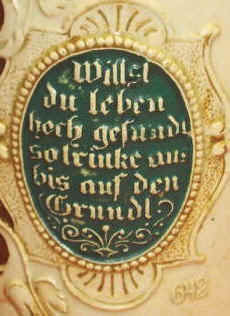 Willst
du leben
hoch gesund,
so trinke aus
bis auf den
Grund!
642